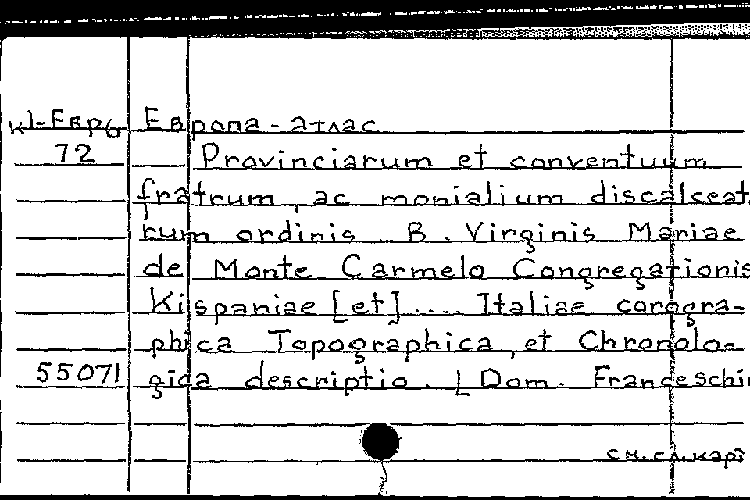 К1-Евр6 Европа-атлас
72 Provinciarum et conventuum
fratrum, ac monialium discalceat
rum ordinis B. Virginis Mariae
de Monte Carmelo Congregationis
Hispaniae [et].... Italiae corogra-
phica Topographica, et Chronolo-
55071 gica descriptio. [Dom. Franceschi
см.сл.карт